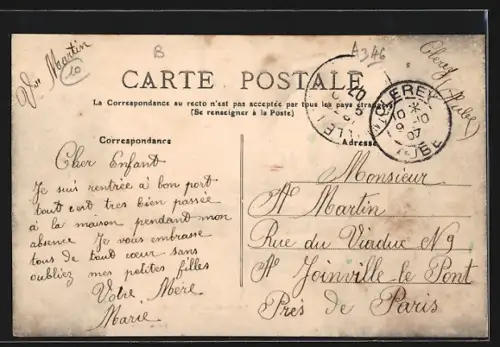 Vve Martin
10
B
A346
Clerey
Aube
CARTE POSTALE
La Correspondance au recto n'est pas acceptée par tous les pays étrangers
(Se renseigner à la Poste)
CLEREY
10 * 10
9
07
AUBE
Correspondance
Adresse
Cher Enfant
Je sui rentrée à bon port
tout cest tres bien passée
à la maison pendant mon
absence Je vous embrasse
tous de tout cœur sans
oubliez mes petites filles
Votre Mère
Marie
Monsieur
A Martin
Rue du Viaduc N 9
A Joinville le Pont
Près de Paris